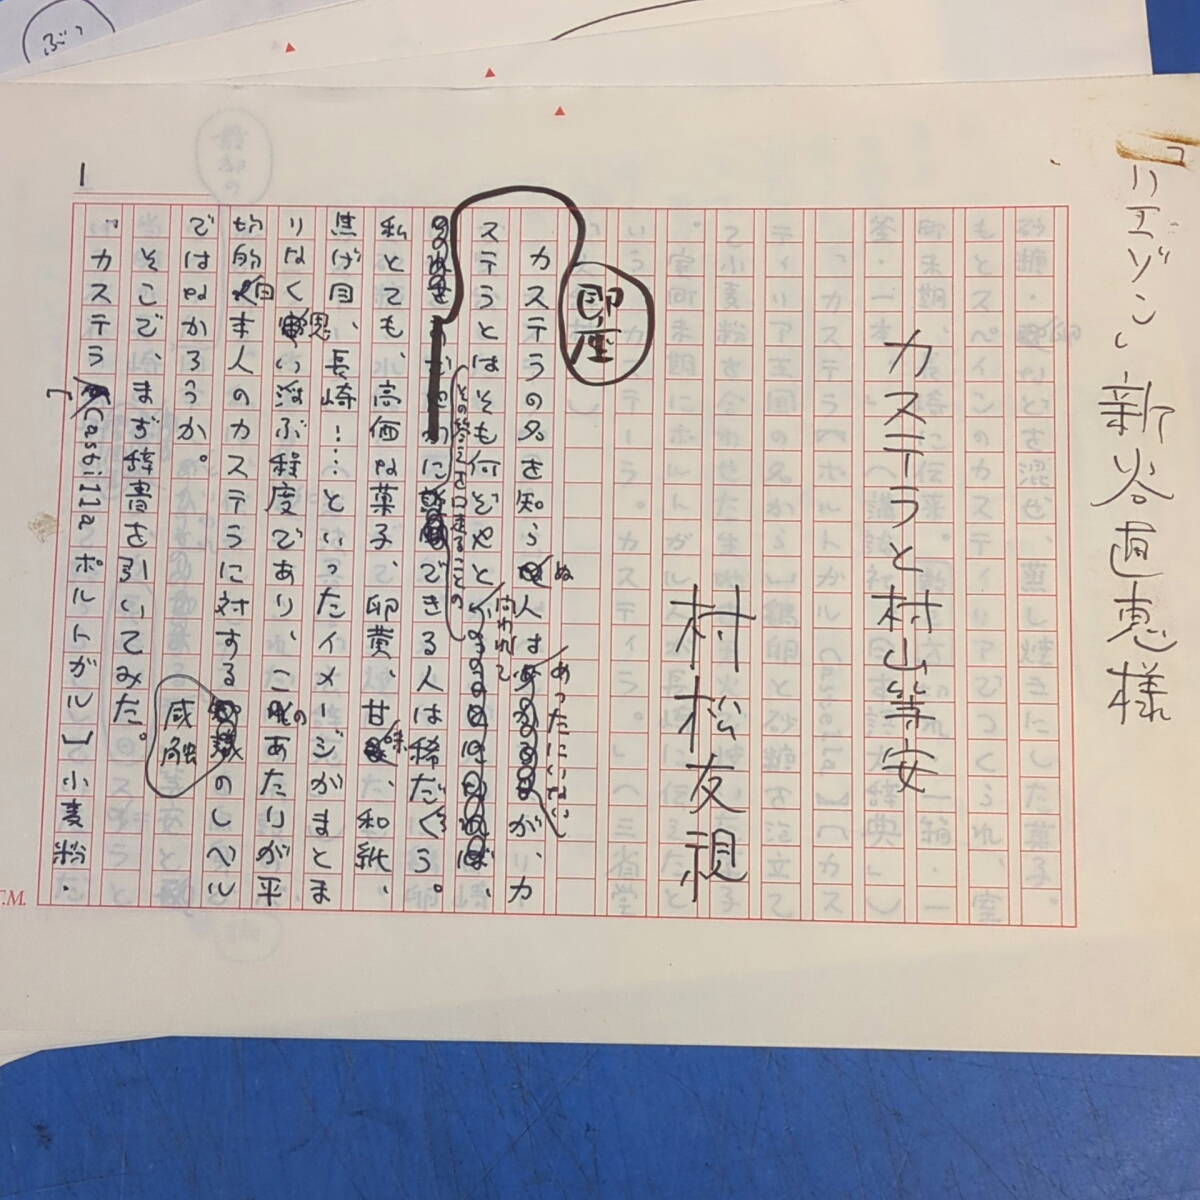 「リエゾン」新谷直恵様
カステラと村山等安
村松友視
カステラの名を知らぬ人はめったにいないが、カ
ステラとはそも何ぞやと問われて
即座
その答えを口走ることの
できる人は稀だろう。
私とても、高価な菓子、卵黄、甘味、和紙、
焦げ目、長崎……といったイメージがまとま
りなく思い浮ぶ程度であり、このあたりが平
均的日本人のカステラに対する
感触
のレベル
ではなかろうか。
そこで、まず辞書を引いてみた。
「カステラ【Castilla ポルトガル】小麦粉・
1
ぶっ